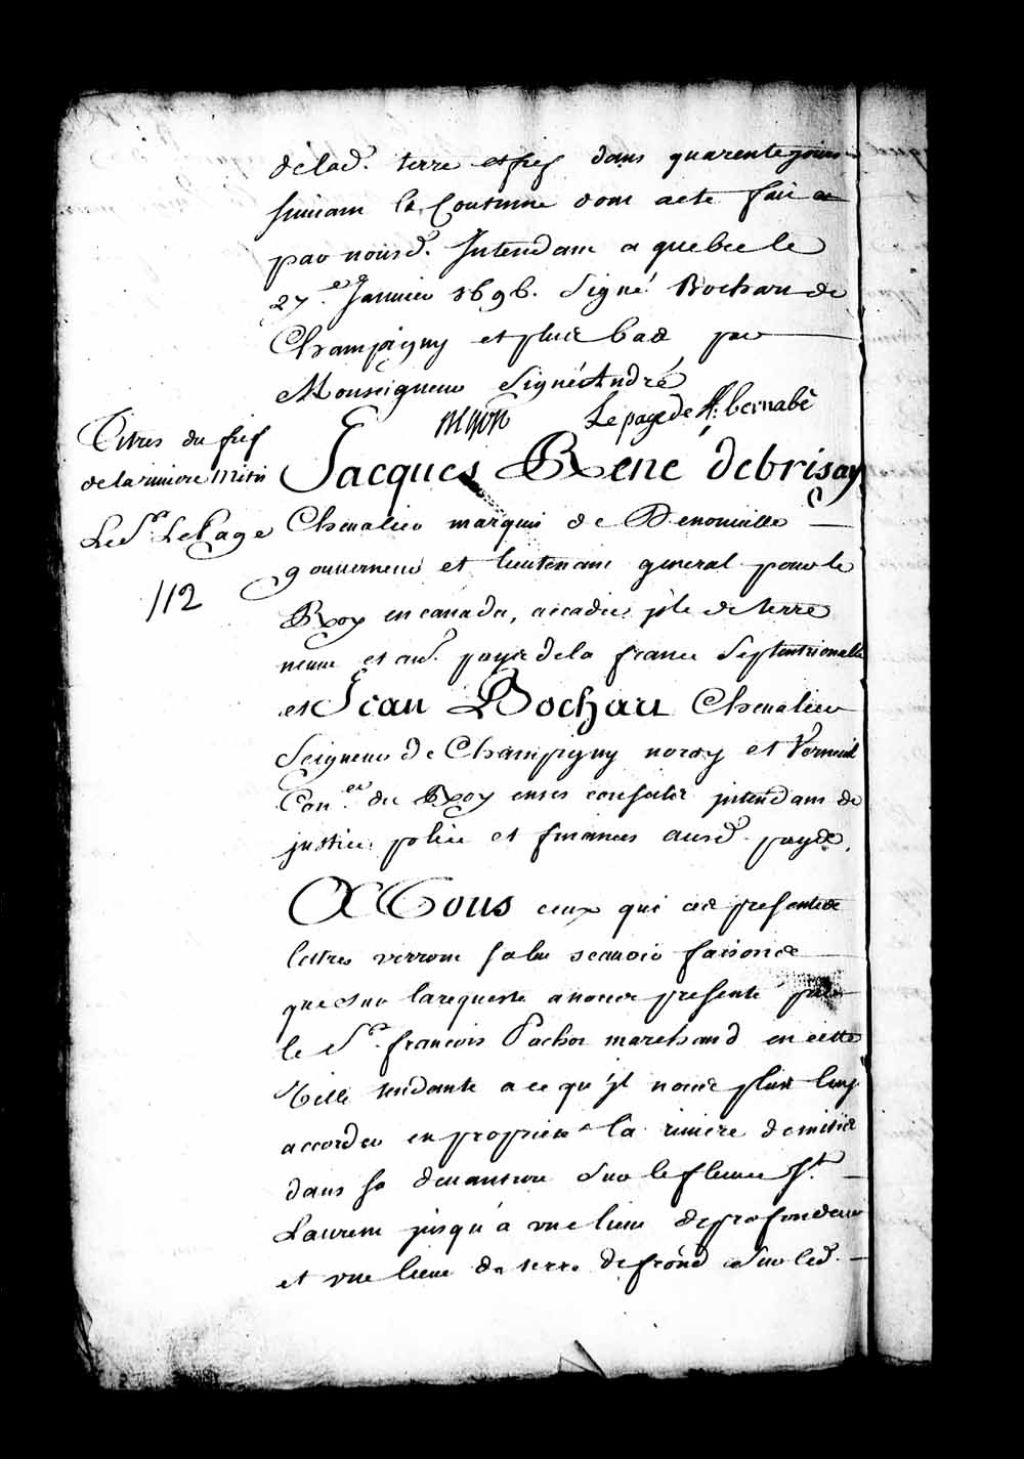 de lad.<sup>e</sup> terre et fief dans quarente jours
suivant la Coutume dont acte fait a
par nousd. Intendant a quebec le
27.<sup>e</sup> Janvier 1696. Signé Bochart de
Champigny et plus bas par
Monseigneur Signé André
mison Le page de St. bernabé
Titres du fief
de la riviere Mitis
Le S.<sup>r</sup> LePage
112
Jacques Rene debrisay
Chevalier marquis de Denonville
gouverneur et lieutenant general pour le
Roy en canada, accadie jsle de terre
neuve et aut. pays de la france Septentrionalle
et Jean Bochart Chevalier
Seigneur de Champigny noroy et Verneuil
Con.<sup>er</sup> du Roy en ses conseils jntendant de
justice police et finances ausd. pays.
A Tous ceux qui ces presentes
lettres verront salut scavoir faisons
que sur la requeste a nous presenté par
le S.<sup>r</sup> francois Pachot marchand en cette
Ville tendante a ce qu'jl nous plut luy
accorder en proprieté la riviere de mitis
dans sa devanture sur le fleuve S.<sup>t</sup>
Laurent jusqu'a une lieue de profondeur
et une lieue de terre de frond sur led.